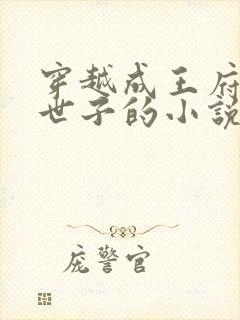 穿越成王府
世子的小説
庞警官